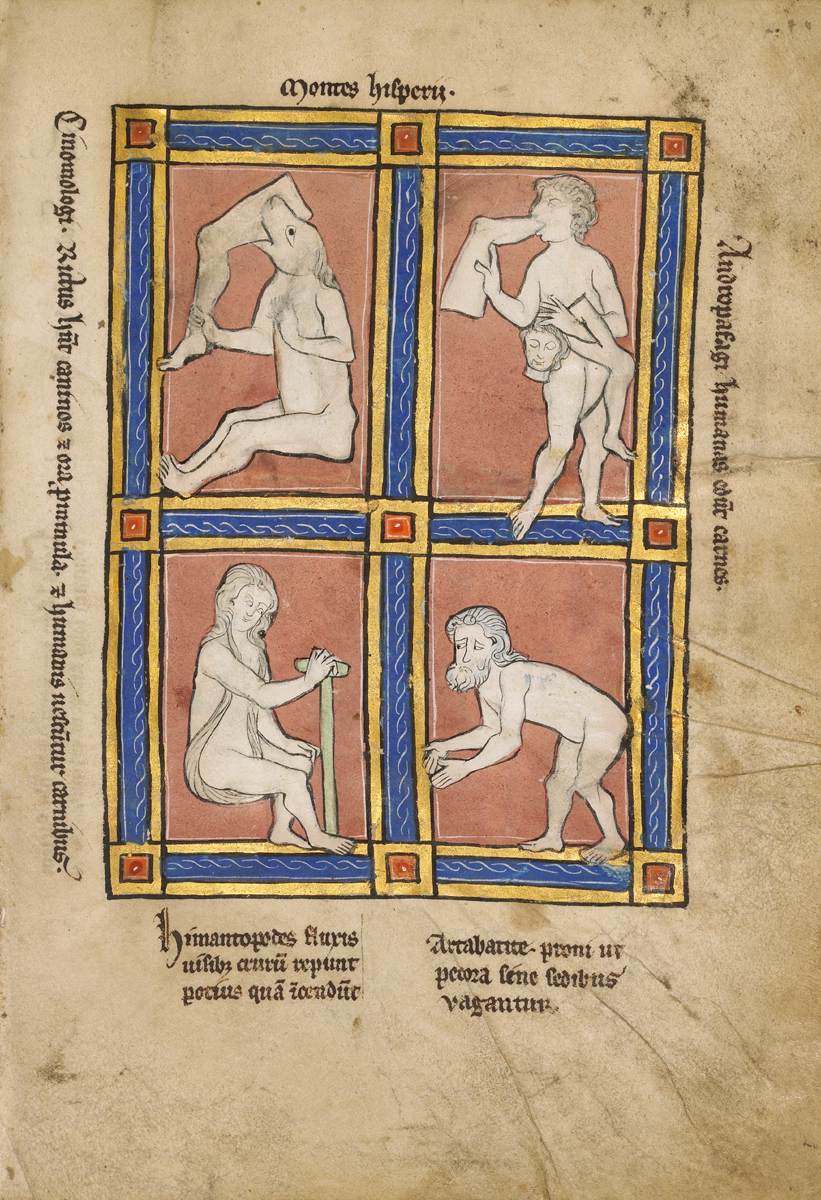 Montes hisperii.
Cinomologi. Rictus hñt caninos ⁊ ora prumula. ⁊ humanis uescũtur carnibus.
Andropafagi humanas edũt carnes.
Himantopodes fluxis
uisibꝫ crurũ repunt
potius quã ĩcendũt
Artabatite. proni ut
pecora sine sedibus
vagantur.